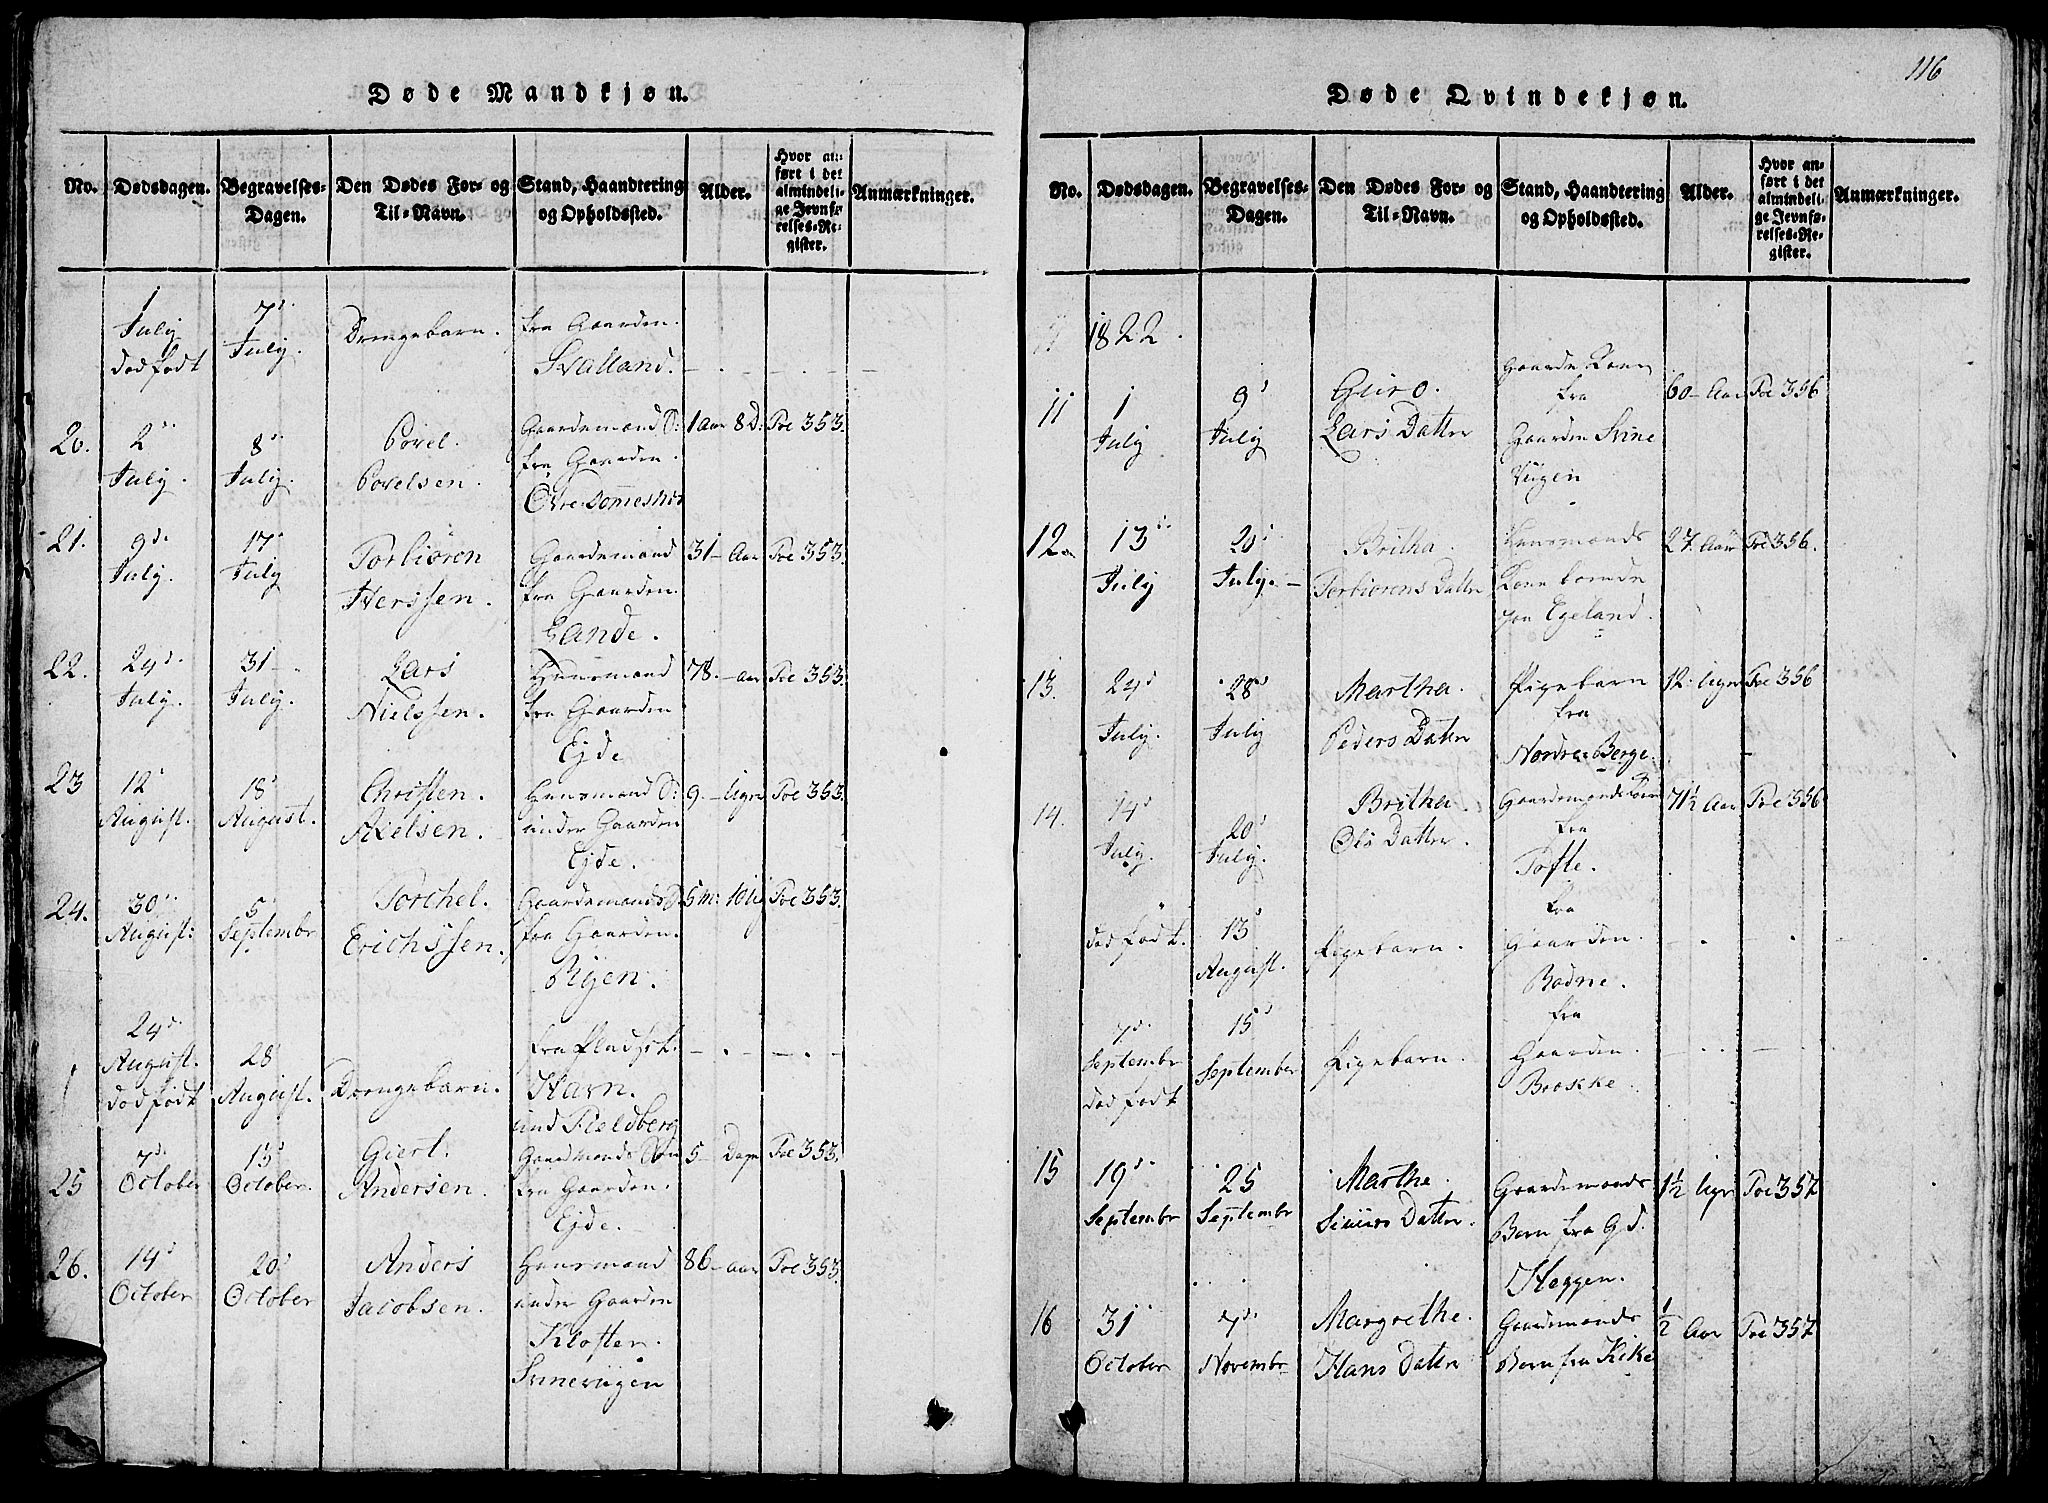 116
Døde Mandkjøn.
No. Dødsdagen. Begravelses-Dagen. Den Dødes For- og Til-Navn. Stand, Haandtering og Opholdssted. Alder. Hvor anført i det almindelige Jevnførelses-Register. Anmærkninger.
1 July dødfødt 7de July. Drengebarn. fra Gaarden Svalland. - . - . -
20. 2de July. 8de July. Povel Povelsen. Gaardemand S: fra Gaarden Øvre 1 Aar 8 D: Foe 353.
21. 9de July. 17de July Torbiøren Herssen. Gaardemand fra Gaarden Lande. 31 - Aar Foe 353.
22. 24de July. 31 - July. Lars Nielssen. Huusmand fra Gaarden Ejde 78. - Aar Foe 353.
23 12de August. 18de August. Christen Axelsen. Huusmand S: under Gaarden Ejde. 9. - Uger Foe 353.
24. 30de August: 5te Septembr Torchel. Erichssen. Gaardemands S. fra Gaarden Ryen. 5 m: 10 U Foe 353.
24de August. dødfødt 28 August. Drengebarn. fra Pladset Havn. und Fieldberg - . - . -
25 7de October 13de October. Giert. Andersen. Gaardmands Søn fra Gaarden. Ejde. 5 - Dage Foe 353.
26. 14de October 20de October Anders Jacobsen. Huusmand under Gaarden Kloster. Svinevugen 86 - aar Foe 353.
Døde Qvindekjøn.
No. Dødsdagen. Begravelses-Dagen. Den Dødes For- og Til-Navn. Stand, Haandtering og Opholdssted. Alder. Hvor anført i det almindelige Jevnførelses-Register. Anmærkninger.
1822.
11 1 July 9de July Guro. Lars Datter Gaarde Kone fra Gaarden Svine Vugen 60 - Aar Foe 356
12. 13de July 20de July. - Britha. Torbiørens Datter Huusmands Kone Egeland. 27. Aar Foe 356.
13. 24de July. 28de July Martha. Peders Datter Pigebarn fra Nordre Berge. 12. Uger Foe 356
14. 14de July. 20de July. Britha. Ols Datter. Gaardemands Kone fra Tofte. 71½ Aar Foe 356
dødfødt. 13de August. Pigebarn. fra Gaarden. Bødne. - . - .
7de Septembr dødfødt 15de September Pigebarn. fra Gaarden. Broske. - . . - . -
15 19de Septembr 25 Septembr Marthe. Siuurs Datter. Gaardemands Barn fra Gd. Heggen. 1½ Uge Foe 357
16 31 October 7de Novembr Margrethe. Hans Datter Gaardemands Barn fra Kike ½ Aar Foe 357